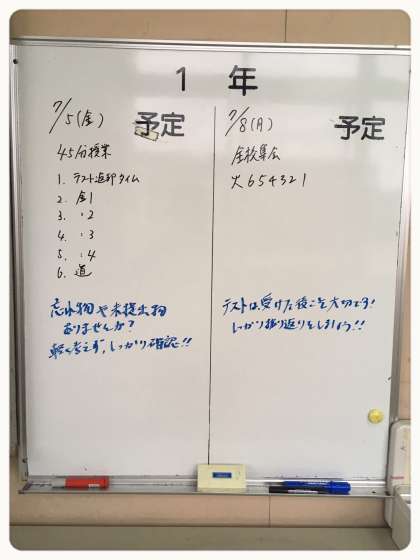 1 年
7/5(金) 予定
45分授業
1. テスト返却タイム
2. 金1
3. 〃2
4. 〃3
5. 〃4
6. 道
忘れ物や未提出物
ありませんか?
軽く考えず、しっかり確認!!
7/8(月) 予定
全校集会
火654321
テストは、受けた後こそ大切です!
しっかり振り返りをしましょう!!